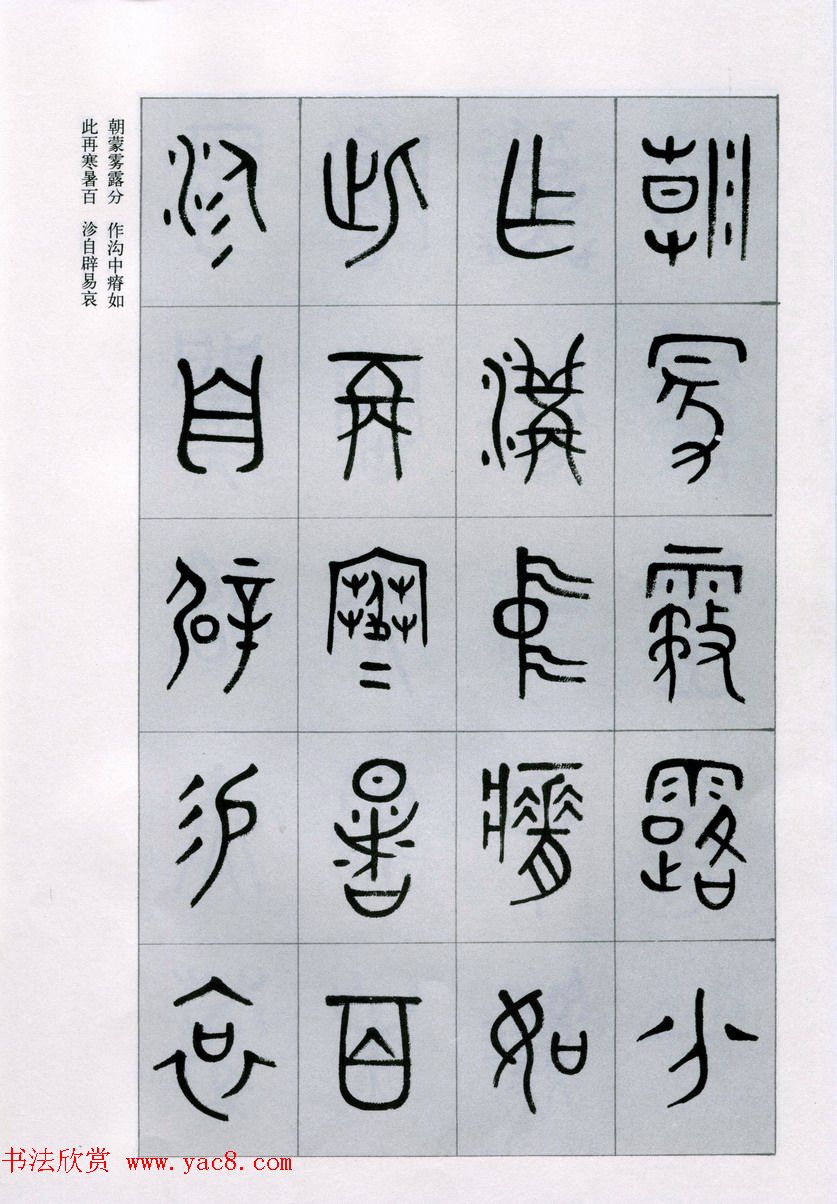 朝蒙霧露分
乍溝中瘠如
此再寒暑百
沴自辟易哀
朝蒙雾露分 作沟中瘠如
此再寒暑百 沴自辟易哀
书法欣赏 www.yac8.com